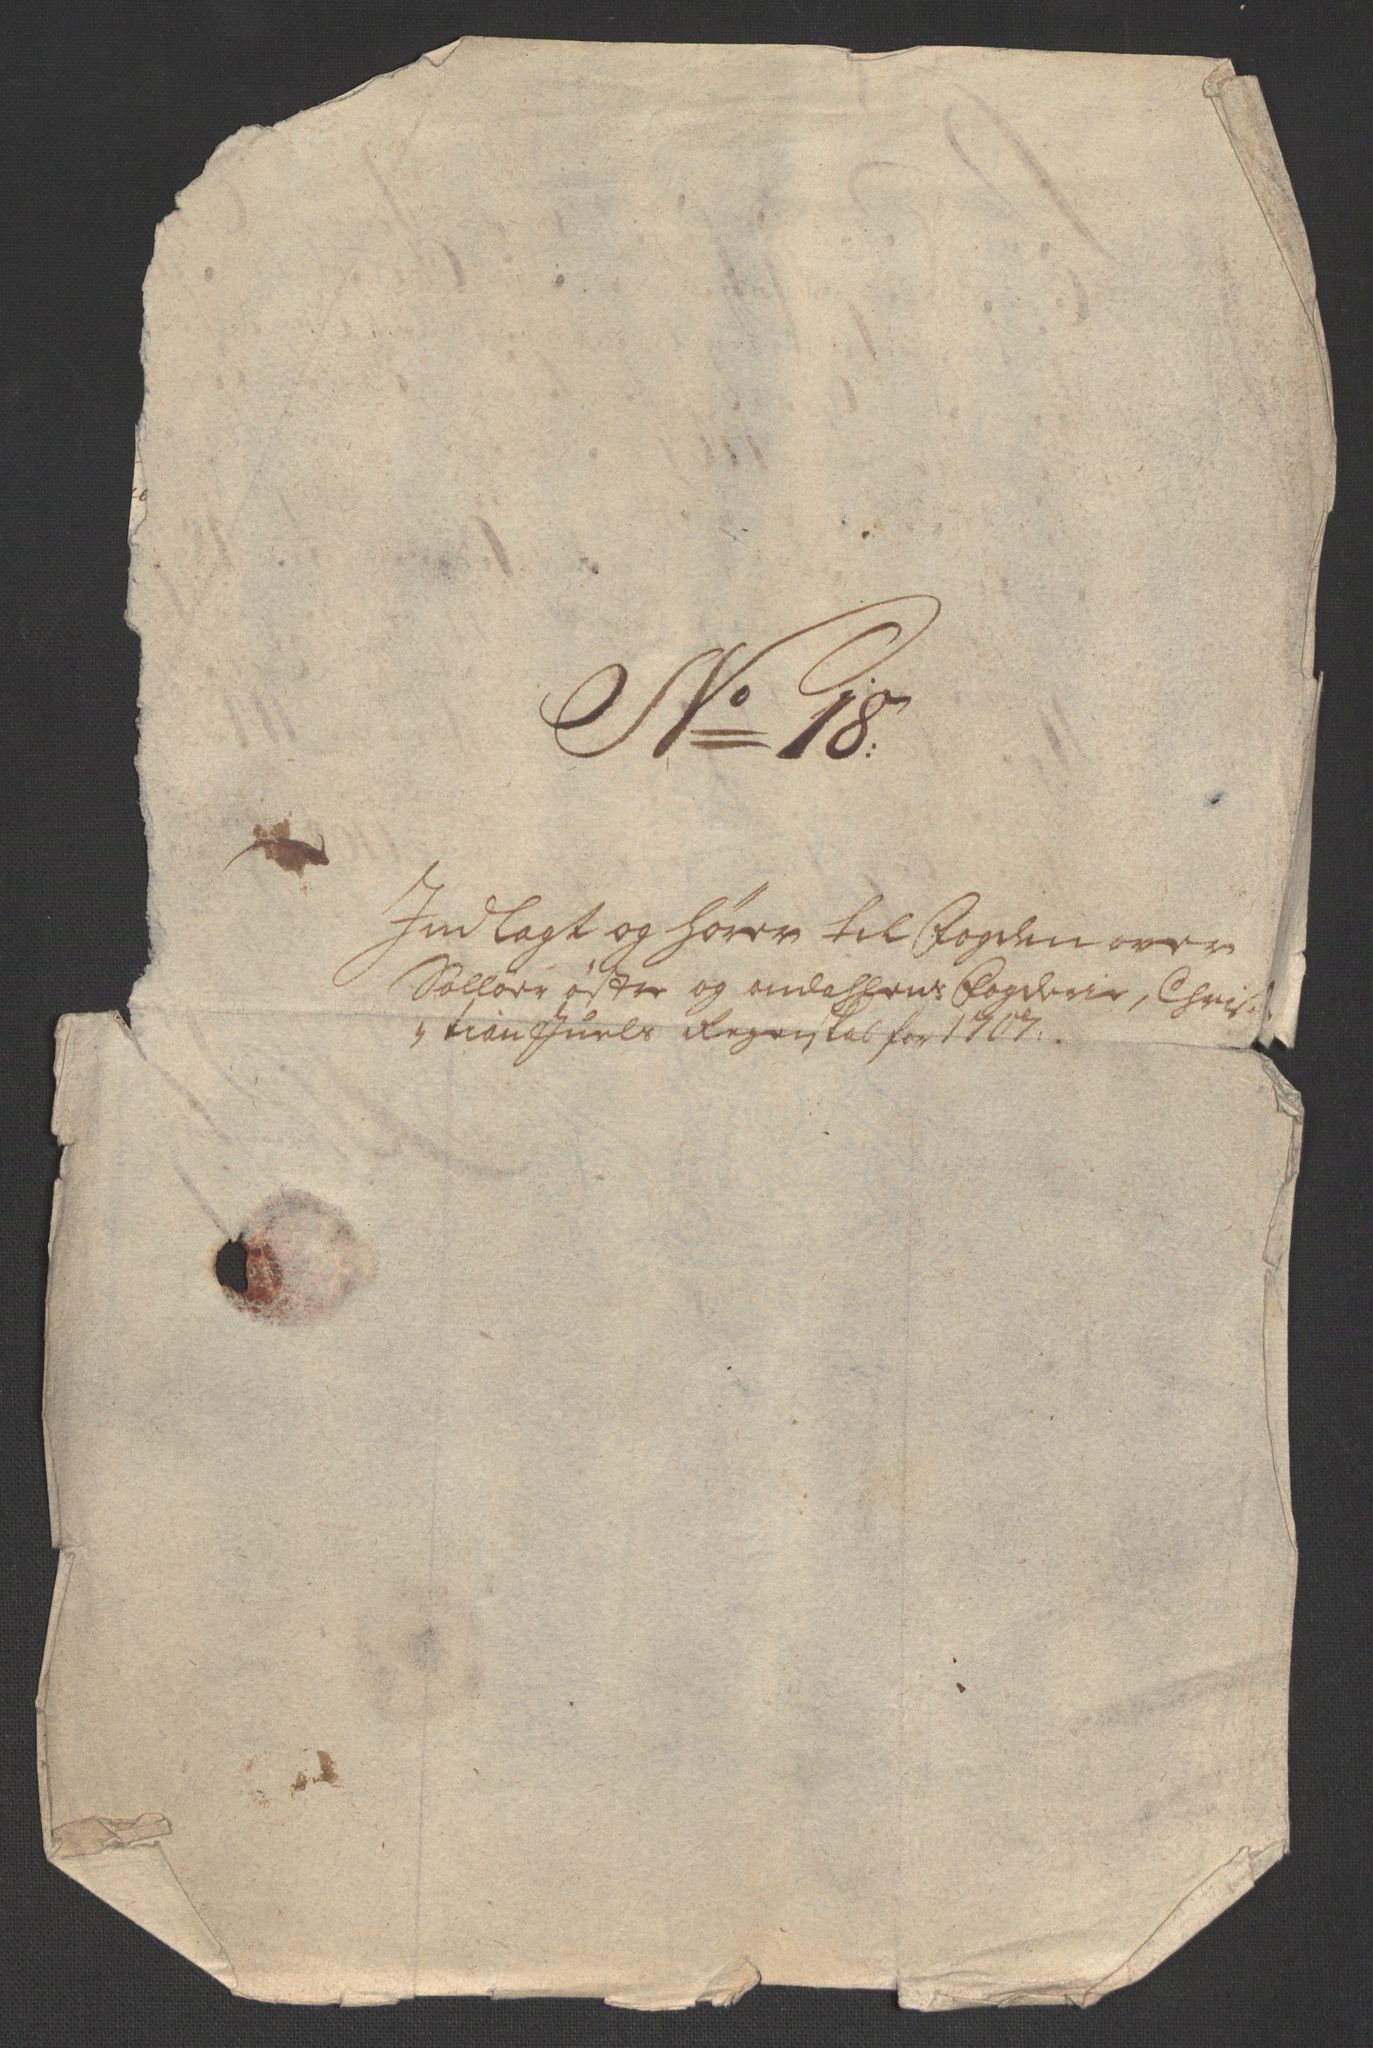 No 18:
Indlagt og hører til Fogden over
Solløer østr og ordahlens Fogderie, Chris-
tian Juels Regenskab for 1707: